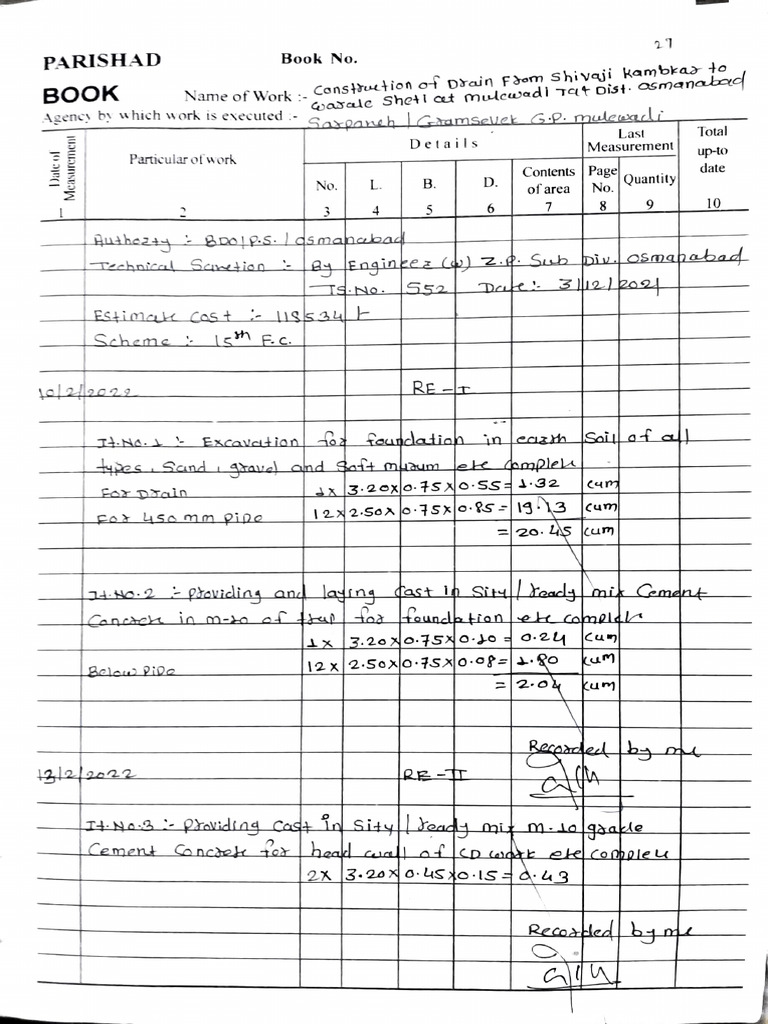 27
PARISHAD Book No.
BOOK Name of Work :- Construction of Drain From Shivaji Kambkar to
warale Sheti at mulewadi Tq& Dist. osmanabad
Agency by which work is executed :- Sarpaneh / Gramsevek G.P. mulewadi
Date of Measurement Particular of work Details Last Measurement Total up-to date
No. L. B. D. Contents of area Page No. Quantity
1 2 3 4 5 6 7 8 9 10
Authority :- BDO/P.S. / osmanabad
Technical Sanction :- By Engineer (w) Z.P. Sub Div. osmanabad
TS.No. 552 Date:- 3/12/2021
Estimate Cost :- 118534
Scheme :- 15th F.C.
10/2/2022 RE-I
It.No.1 :- Excavation for foundation in earth Soil of all
types, Sand, gravel and Soft murum etc complete
For Drain 1x 3.20x0.75x0.55=1.32 cum
For 450 mm pipe 12x2.50x0.75x0.85=19.13 cum
= 20.45 cum
It.No.2 :- Providing and laying Cast in Sity / ready mix Cement
Concrete in m-10 of trap for foundation etc complete
1x 3.20x0.75x0.10=0.24 cum
Below Pipe 12x 2.50x0.75x0.08=1.80 cum
= 2.04 cum
Recorded by me
13/2/2022 RE-II
It.No.3 :- Providing Cast in Sity / ready mix m-10 grade
Cement Concrete for head wall of CD work etc complete
2x 3.20x0.45x0.15=0.43
Recorded by me